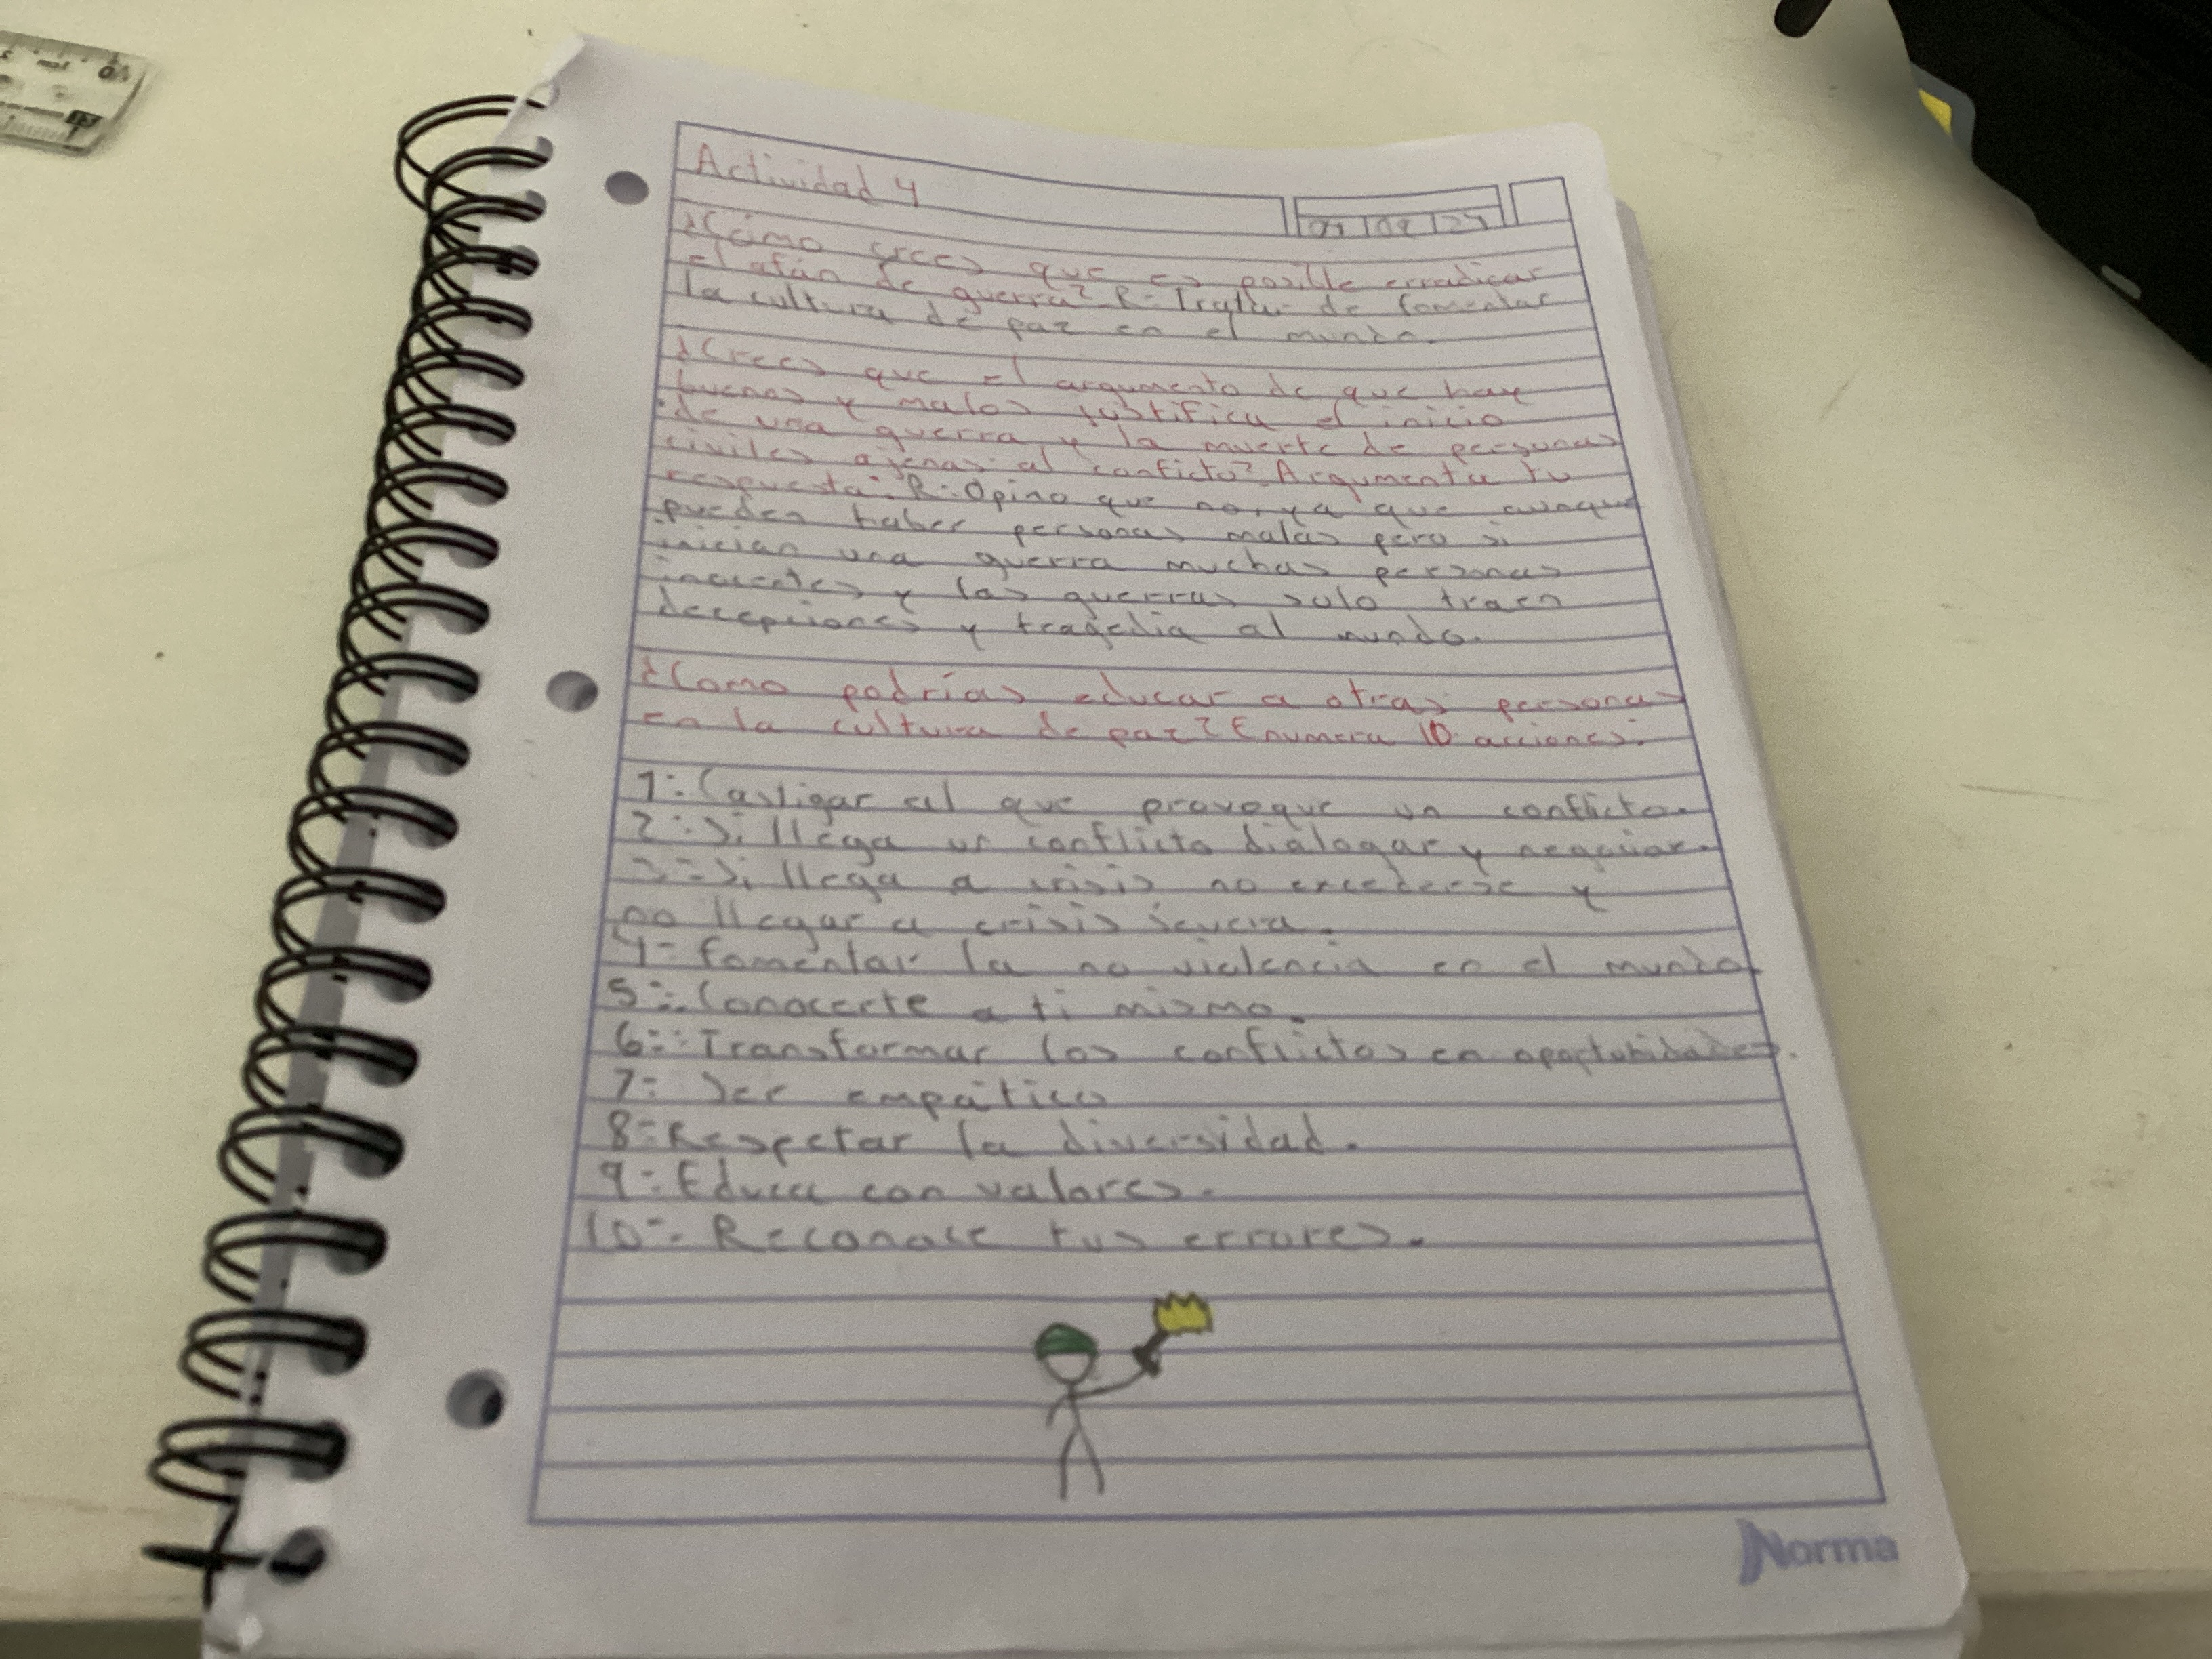 Actividad 4
¿Cómo crees que es posible erradicar
el afán de guerra? R= Tratar de fomentar
la cultura de paz en el mundo.
¿Crees que el argumento de que hay
buenos y malos justifica el inicio
de una guerra y la muerte de personas
civiles ajenas al conficto? Argumenta tu
respuesta: R= Opino que no, ya que aunque
pueden haber personas malas pero si
inician una guerra muchas personas
inocentes y las guerras solo traen
decepciones y tragedia al mundo.
¿Como podrías educar a otras personas
en la cultura de paz? Enumera 10 acciones.
1= Castigar al que provoque un conflicto.
2= Si llega un conflicto dialogar y negociar.
3= Si llega a crisis no excederse y
no llegar a crisis severa.
4= fomentar la no violencia en el mundo.
5= Conocerte a ti mismo.
6= Transformar los conflictos en oportunidades.
7= Ser empático
8= Respetar la diversidad.
9= Educa con valores.
10= Reconoce tus errores.
Norma